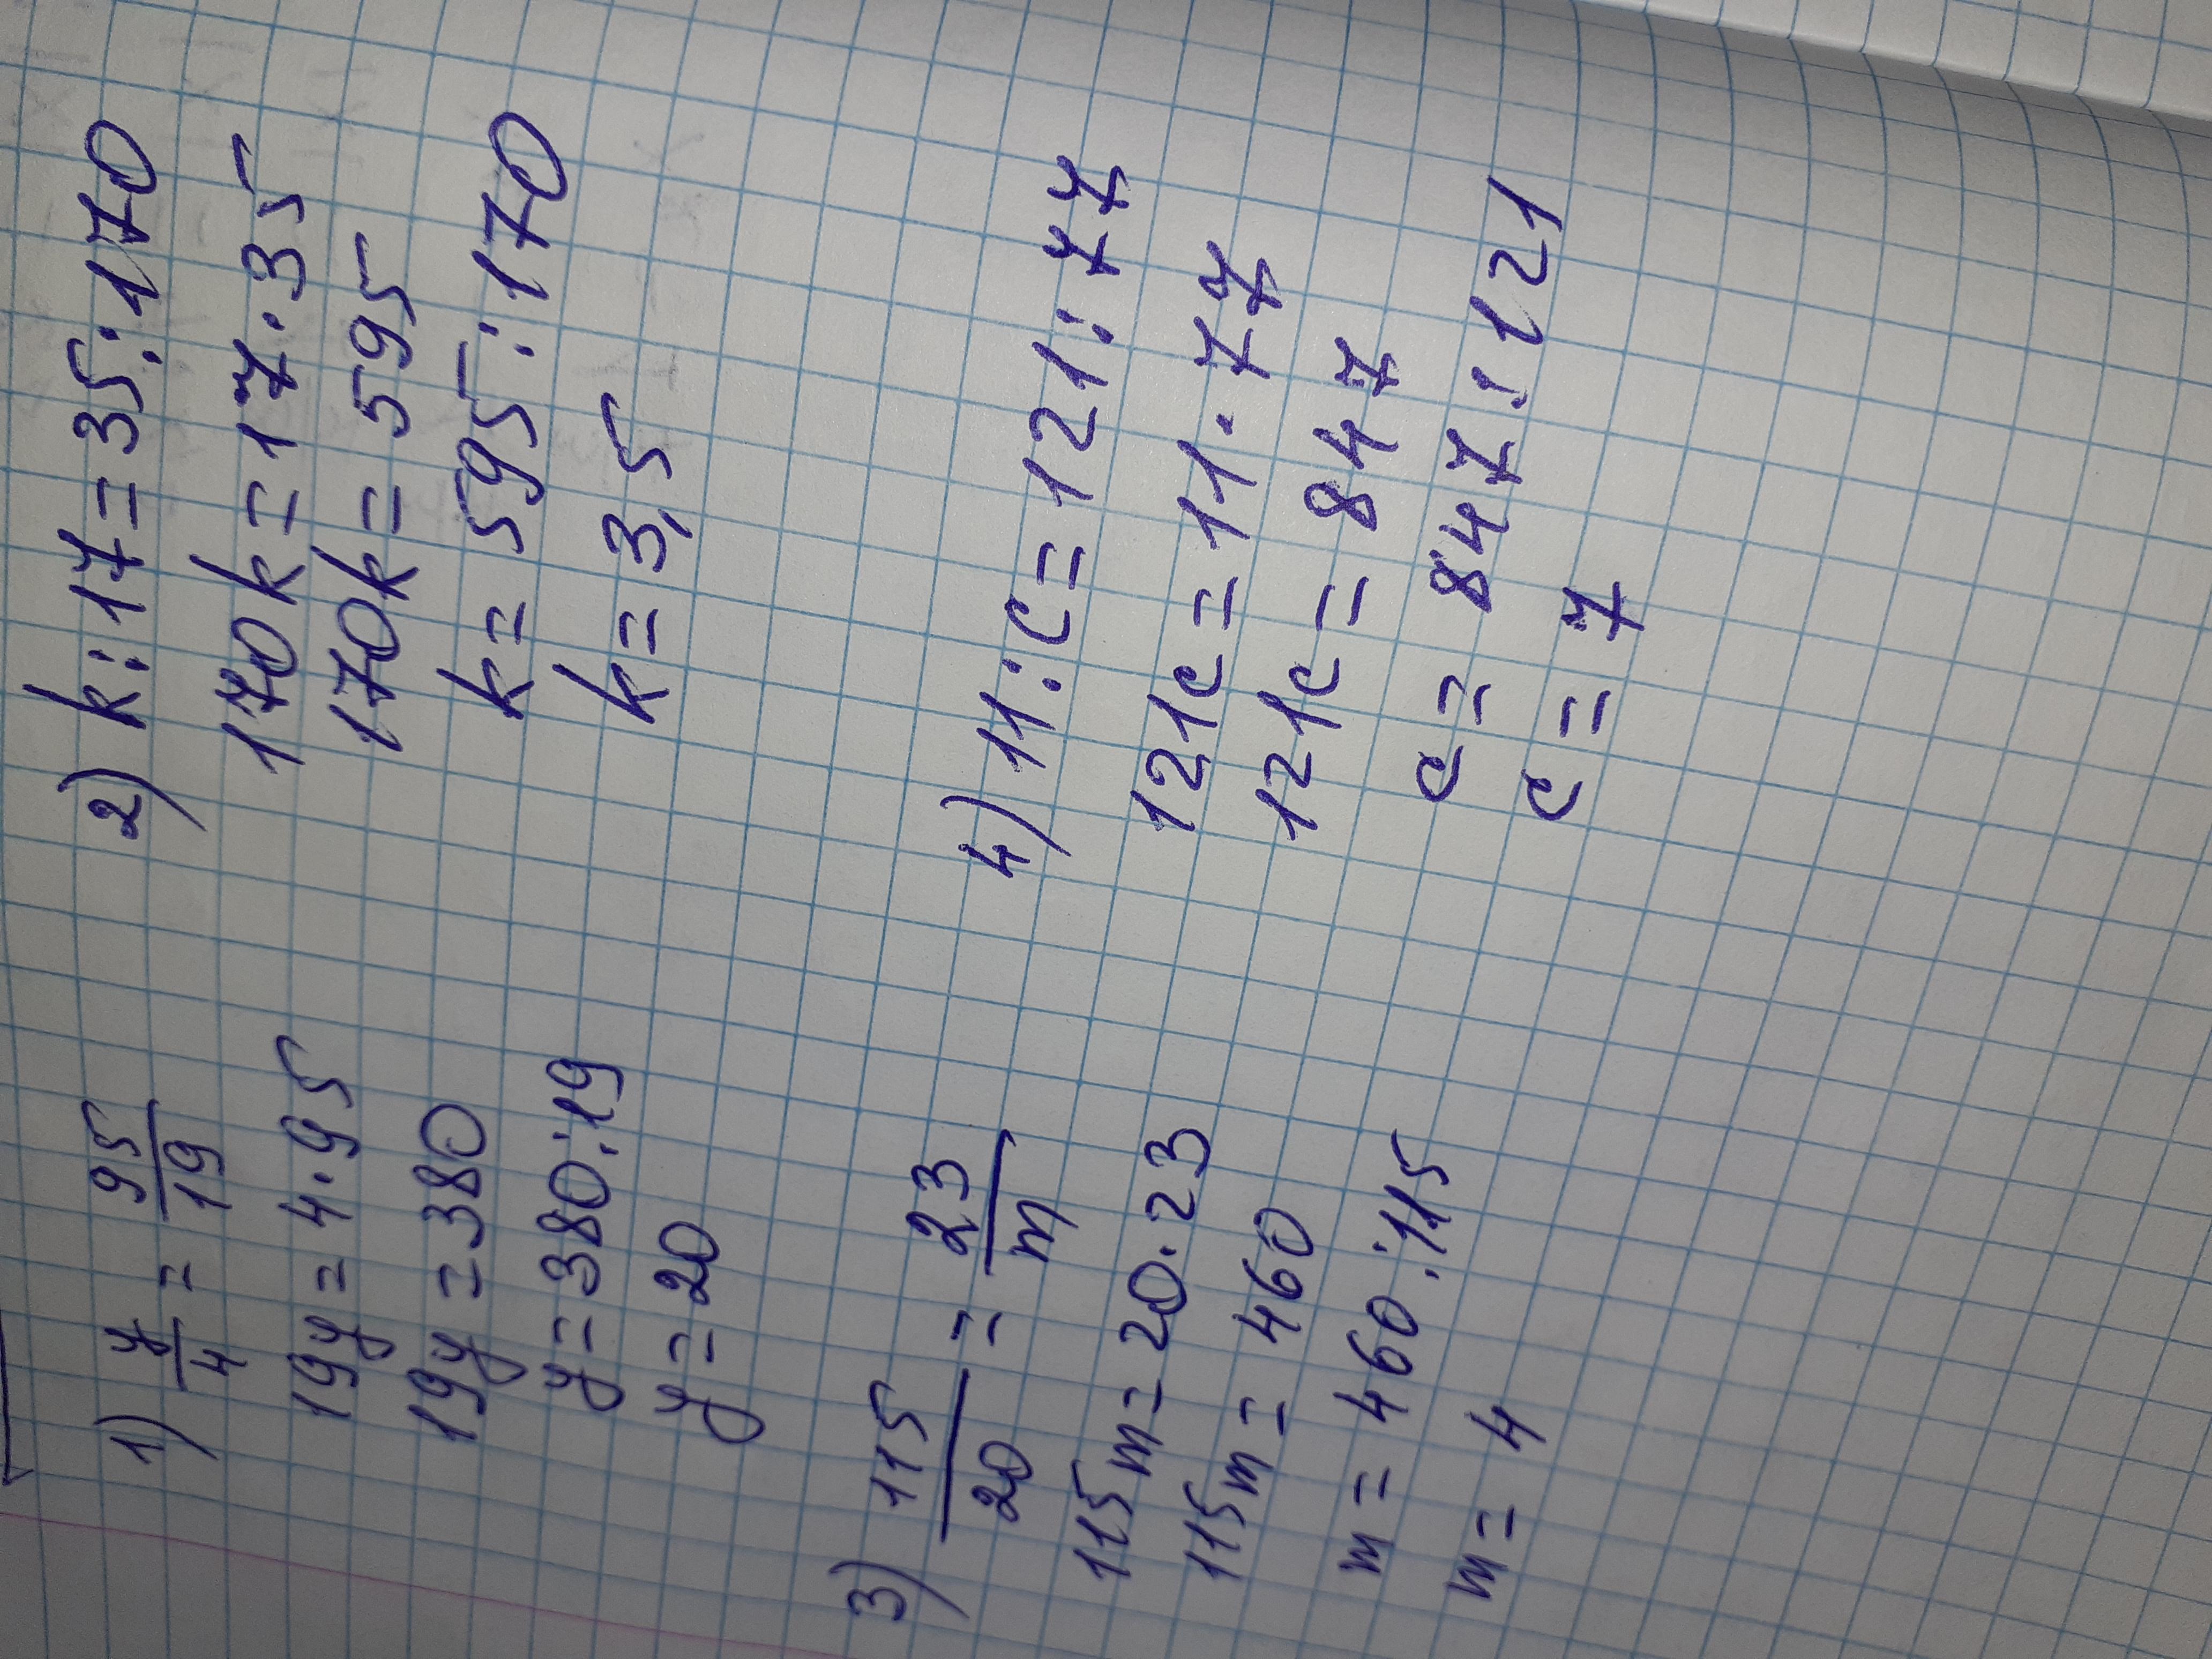 1) y/4 = 95/19
19y = 4·95
19y = 380
y = 380:19
y = 20
2) k:17=35:170
170k=17·35
170k=595
k=595:170
k=3,5
3) 115/20 = 23/m
115m=20·23
115m=460
m=460:115
m=4
4) 11:c=121:77
121c=11·77
121c=847
c=847:121
c=7